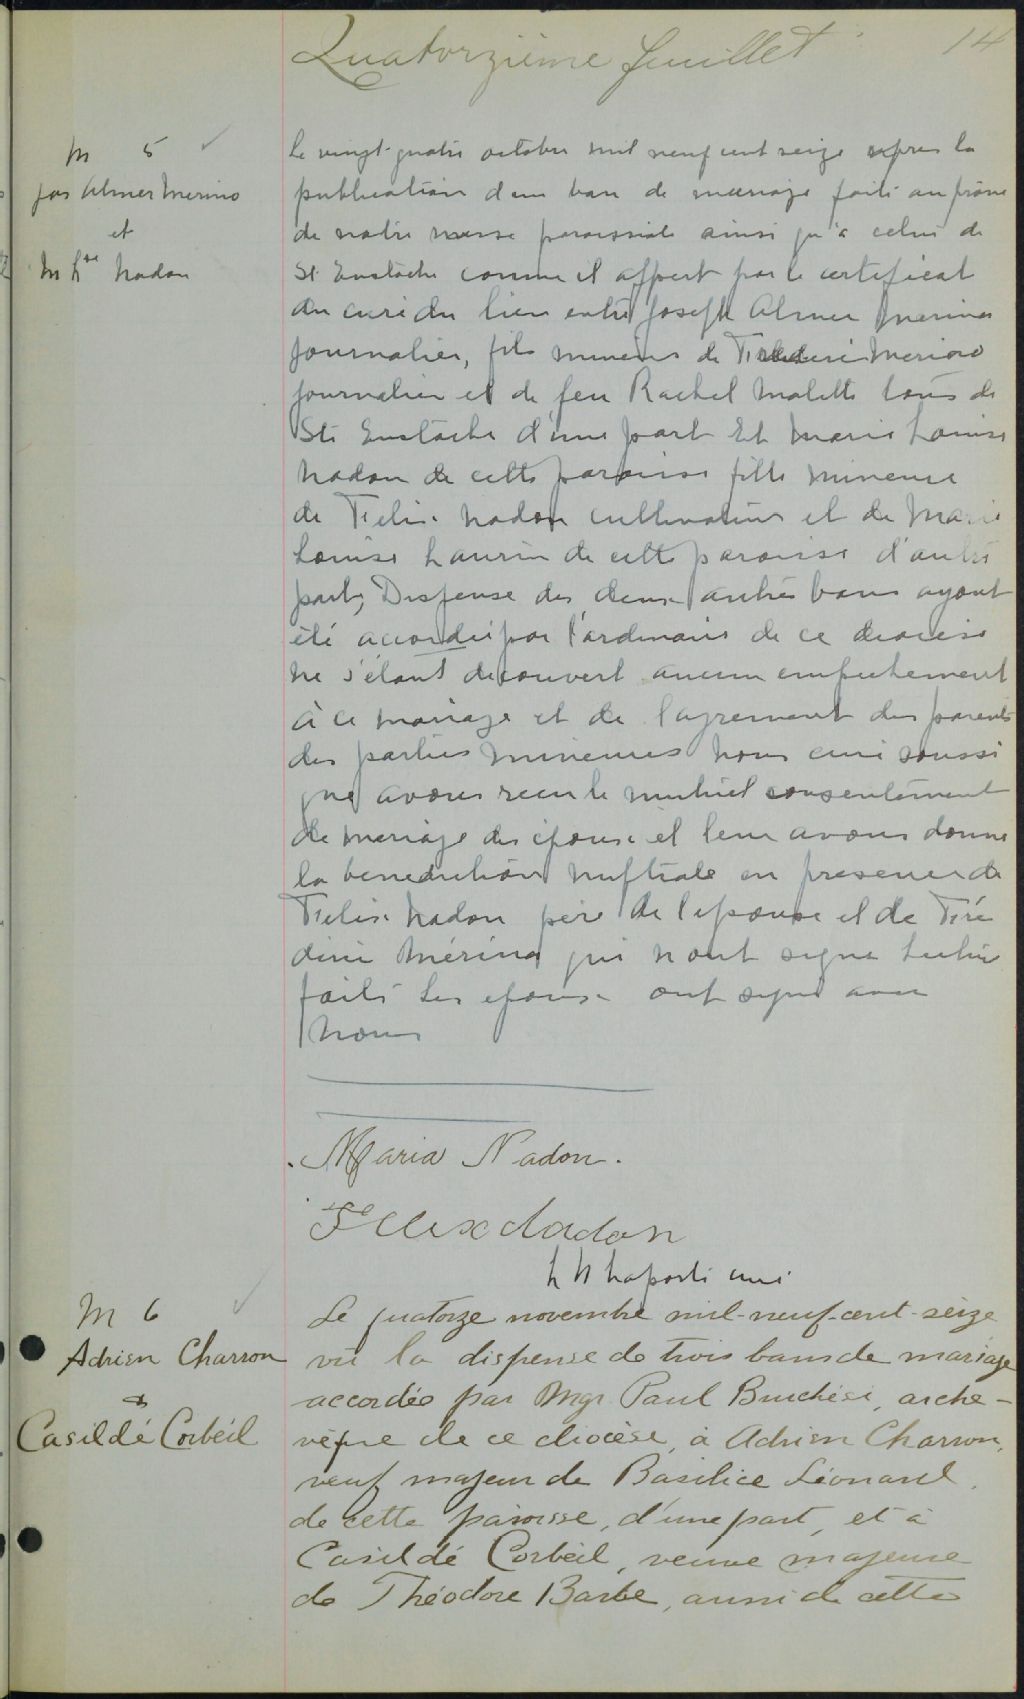 Quatorzième feuillet 14
M 5
Jos Almer Merino
et
M Lse Nadon
Le vingt-quatre octobre mil neuf cent seize apres la
publication d'un ban de mariage faite au prône
de notre messe paroissiale ainsi qu'a celui de
St Eustache comme il appert par le certificat
du curé du lieu entre Joseph Almer Merino
journalier, fils mineur de Merino
journalier et de feu Rachel Malette tous de
St Eustache d'une part Et Marie Louise
Nadon de cette paroisse fille mineure
de Felix Nadon cultivateur et de Marie
Louise Laurin de cette paroisse d'autre
part, Dispense des deux autres bans ayant
été accordée par l'ordinaire de ce diocese
ne s'étant decouvert aucun empechement
à ce mariage et de l'agrement des parents
des parties mineures nous curé soussi
gné avons recu le mutuel consentement
de mariage des époux et leur avons donné
la benediction nuptiale en presence de
Felix Nadon père de l'epouse et de Fré
deric Mérino qui n'ont signe lecture
faite Les epoux ont signé avec
Nous
Maria Nadon.
Felix Nadon
Laporte curé
M 6
Adrien Charron
&
Casildé Corbeil
Le quatorze novembre mil-neuf-cent-seize
vu la dispense de trois bans de mariage
accordée par Mgr Paul Bruchési, arche-
vêque de ce diocèse, à Adrien Charron,
veuf majeur de Basilice Léonard,
de cette paroisse, d'une part, et à
Casildé Corbeil, veuve majeure
de Théodore Barbe, aussi de cette